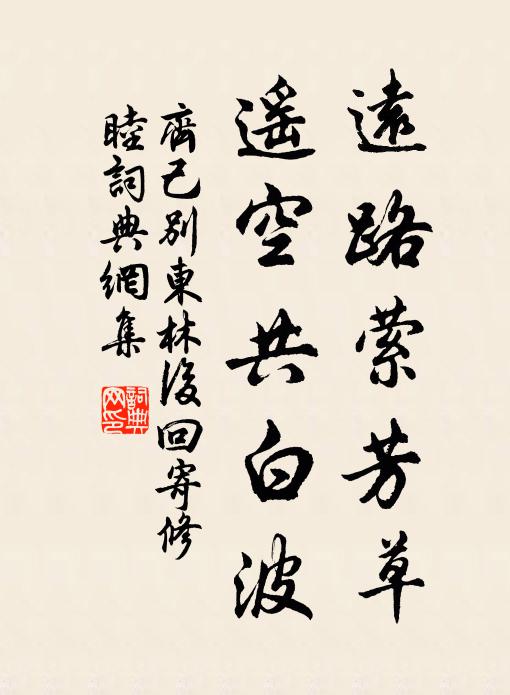 遠路縈芳草
遥空共白波
齊己別東林後回寄修
睦詞典網集
詞典网印